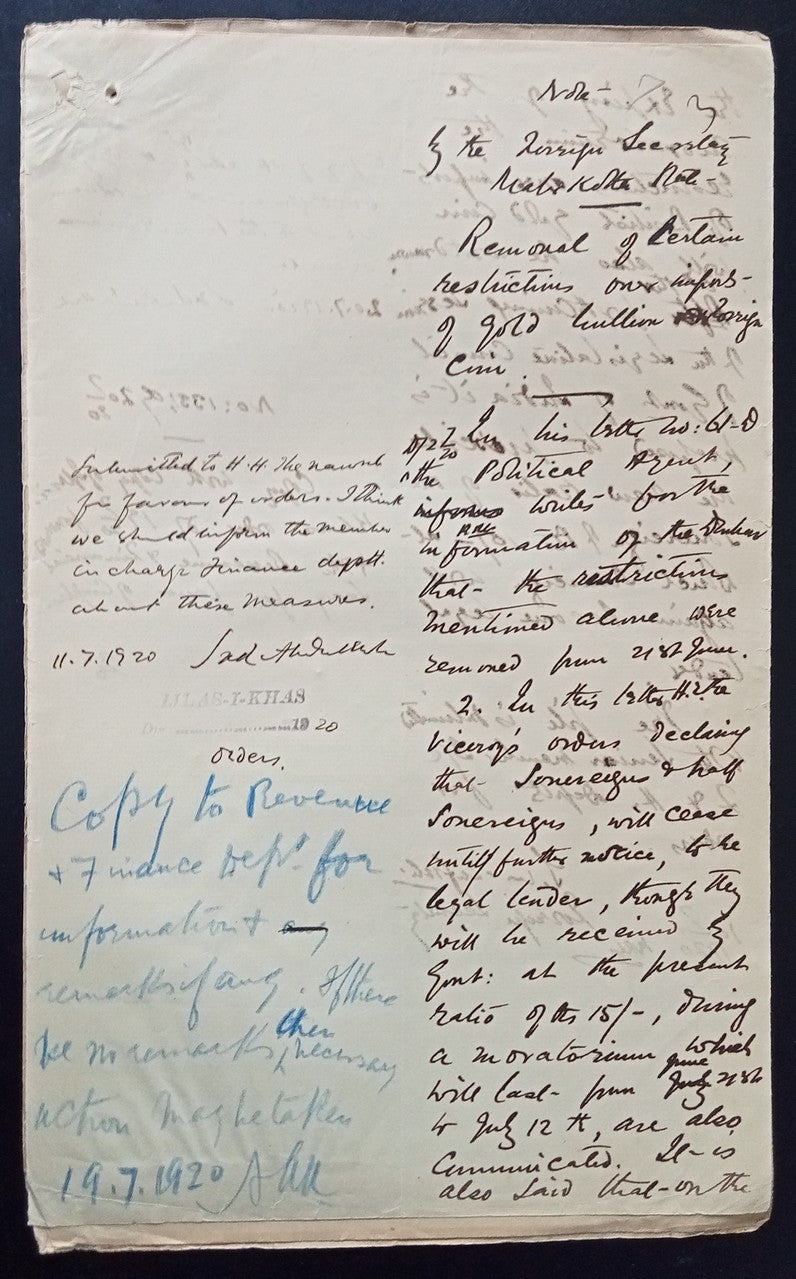 Note
by the Foreign Secretary
Maler Kotla State
Removal of certain
restrictions over import
of gold bullion & Foreign
Coin.
In his letter no: 61-D
D/ 2/7/20
the Political Agent,
writes for the
information of the Durbar
that the restrictions
mentioned above were
removed from 21st June.
2. In this letter H.E. the
Viceroy's orders declaring
that Sovereigns & half
Sovereigns, will cease
untill further notice, to be
legal tender, though they
will be received by
Govt: at the present
ratio of Rs 15/-, during
a moratorium which
will last from June 21st
to July 12th, are also
Communicated. It is
also said that on the
Submitted to H.H. The nawab
for favour of orders. I think
we should inform the member
in charge Finance deptt.
about these measures.
11.7.1920
IJLAS-I-KHAS
1920
Orders.
Copy to Revenue
& Finance Dept. for
information &
remarks if any. If there
be no remarks, then necessary
action may be taken
19.7.1920